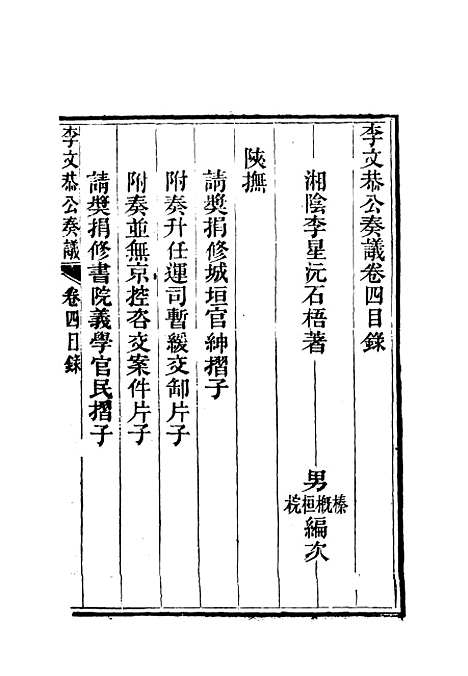 李文恭公奏議卷四目錄
湘陰李星沅石梧著　男榛概桓梡編次
陝撫
請奬捐修城垣官紳摺子
附奏升任運司暫緩交卸片子
附奏並無京控咨交案件片子
請奬捐修書院義學官民摺子
李文恭公奏議　卷四目錄